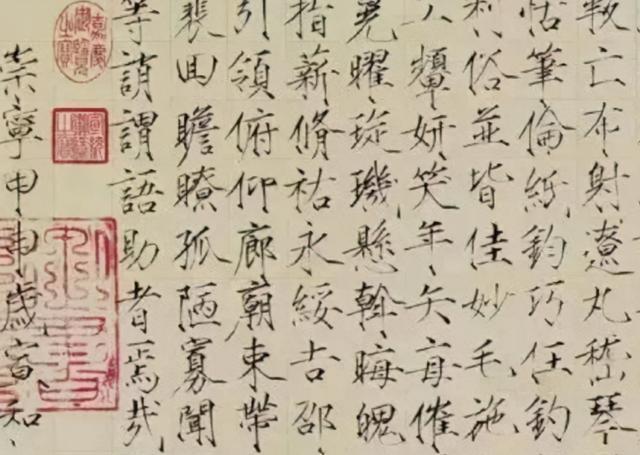 叛亡布射遼丸嵇琴
恬筆倫紙鈞巧任釣
利俗並皆佳妙毛施
工顰妍笑年矢每催
晃曜璇璣懸斡晦魄
指薪脩祜永綏吉邵
引領俯仰廊廟束帶
裴回瞻眺孤陋寡聞
等誚謂語助者焉哉
嘉慶御覽之寶
崇寧甲申歲宣和